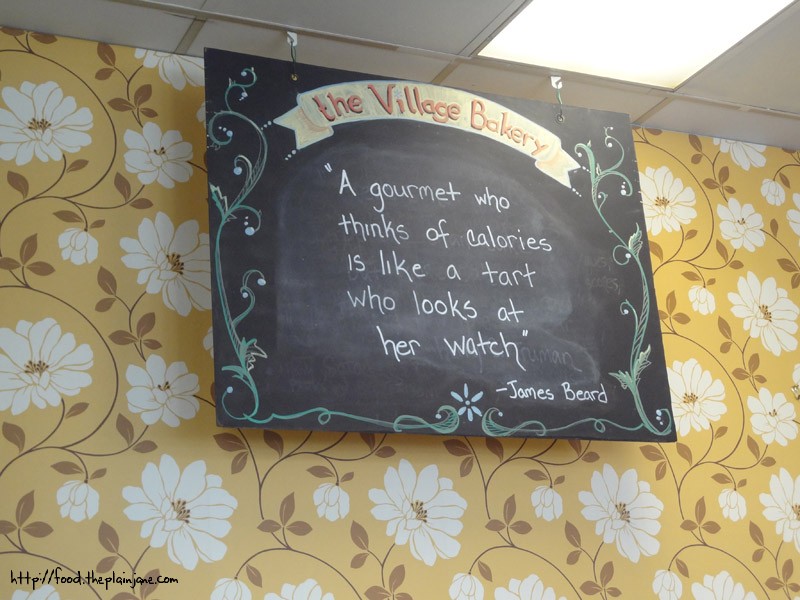 the Village Bakery
"A gourmet who
thinks of calories
is like a tart
who looks at
her watch"
-James Beard
http://food.theplainjane.com